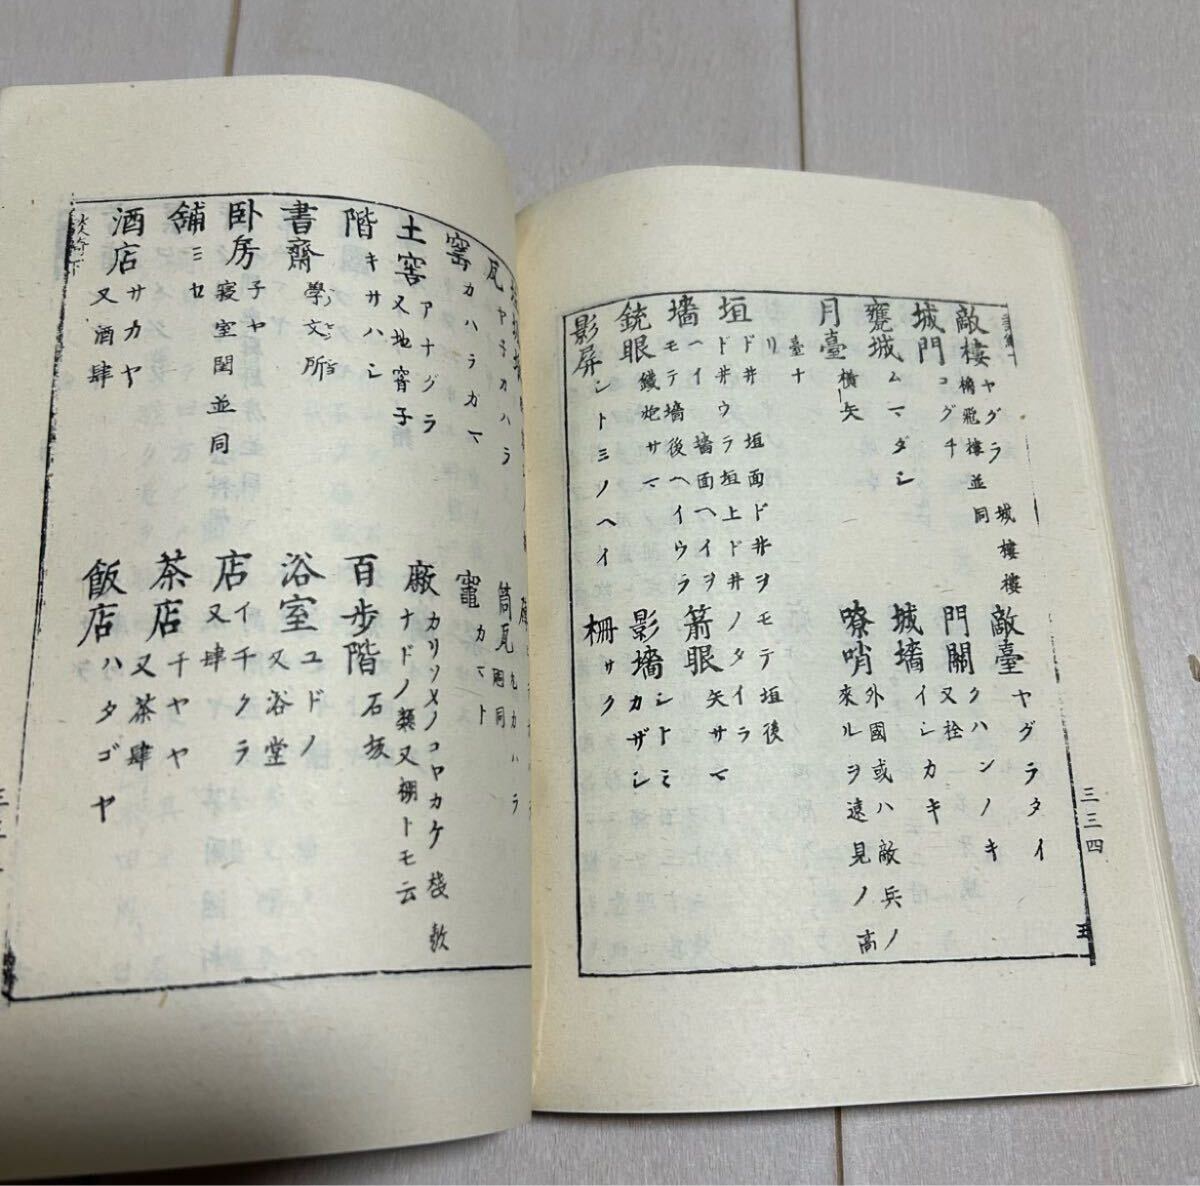 三三四
五
敵樓 ヤグラ 城樓 樓
櫓 飛樓 並同
敵臺 ヤグラタイ
城門 コグチ
門關 クハンノキ
又栓
甕城 ムマダシ
城墻 イシカキ
月臺 横矢
嘹哨 外國或ハ敵兵ノ
來ル ヲ遠見ノ高
臺ナリ
垣 ド井 垣面ド井ヲモテ 垣後
ド井ウラ 垣上ド井ノタイラ
墻 ヘイ 墻面ヘイヲ
モテ 墻後ヘイウラ
箭眼 矢サマ
銃眼 鐵炮サマ
影墻 シトミ
カザシ
影屏 シトミノヘイ
柵 サク
瓦 ヤ子カハラ
筒瓦 丸カハラ
同
窰 カハラカマ
竈 カマト
土窖 アナグラ
又地窖子
廠 カリソメノコヤカケ 棧敷
ナドノ類又棚トモ云
階 キサハシ
百步階 石坂
書齋 學文所
浴室 ユドノ
又浴堂
卧房 子ヤ
寝室 閨 並同
店 イチクラ
又肆
舖 ミセ
茶店 チヤヤ
又茶肆
酒店 サカヤ
又酒肆
飯店 ハタゴヤ